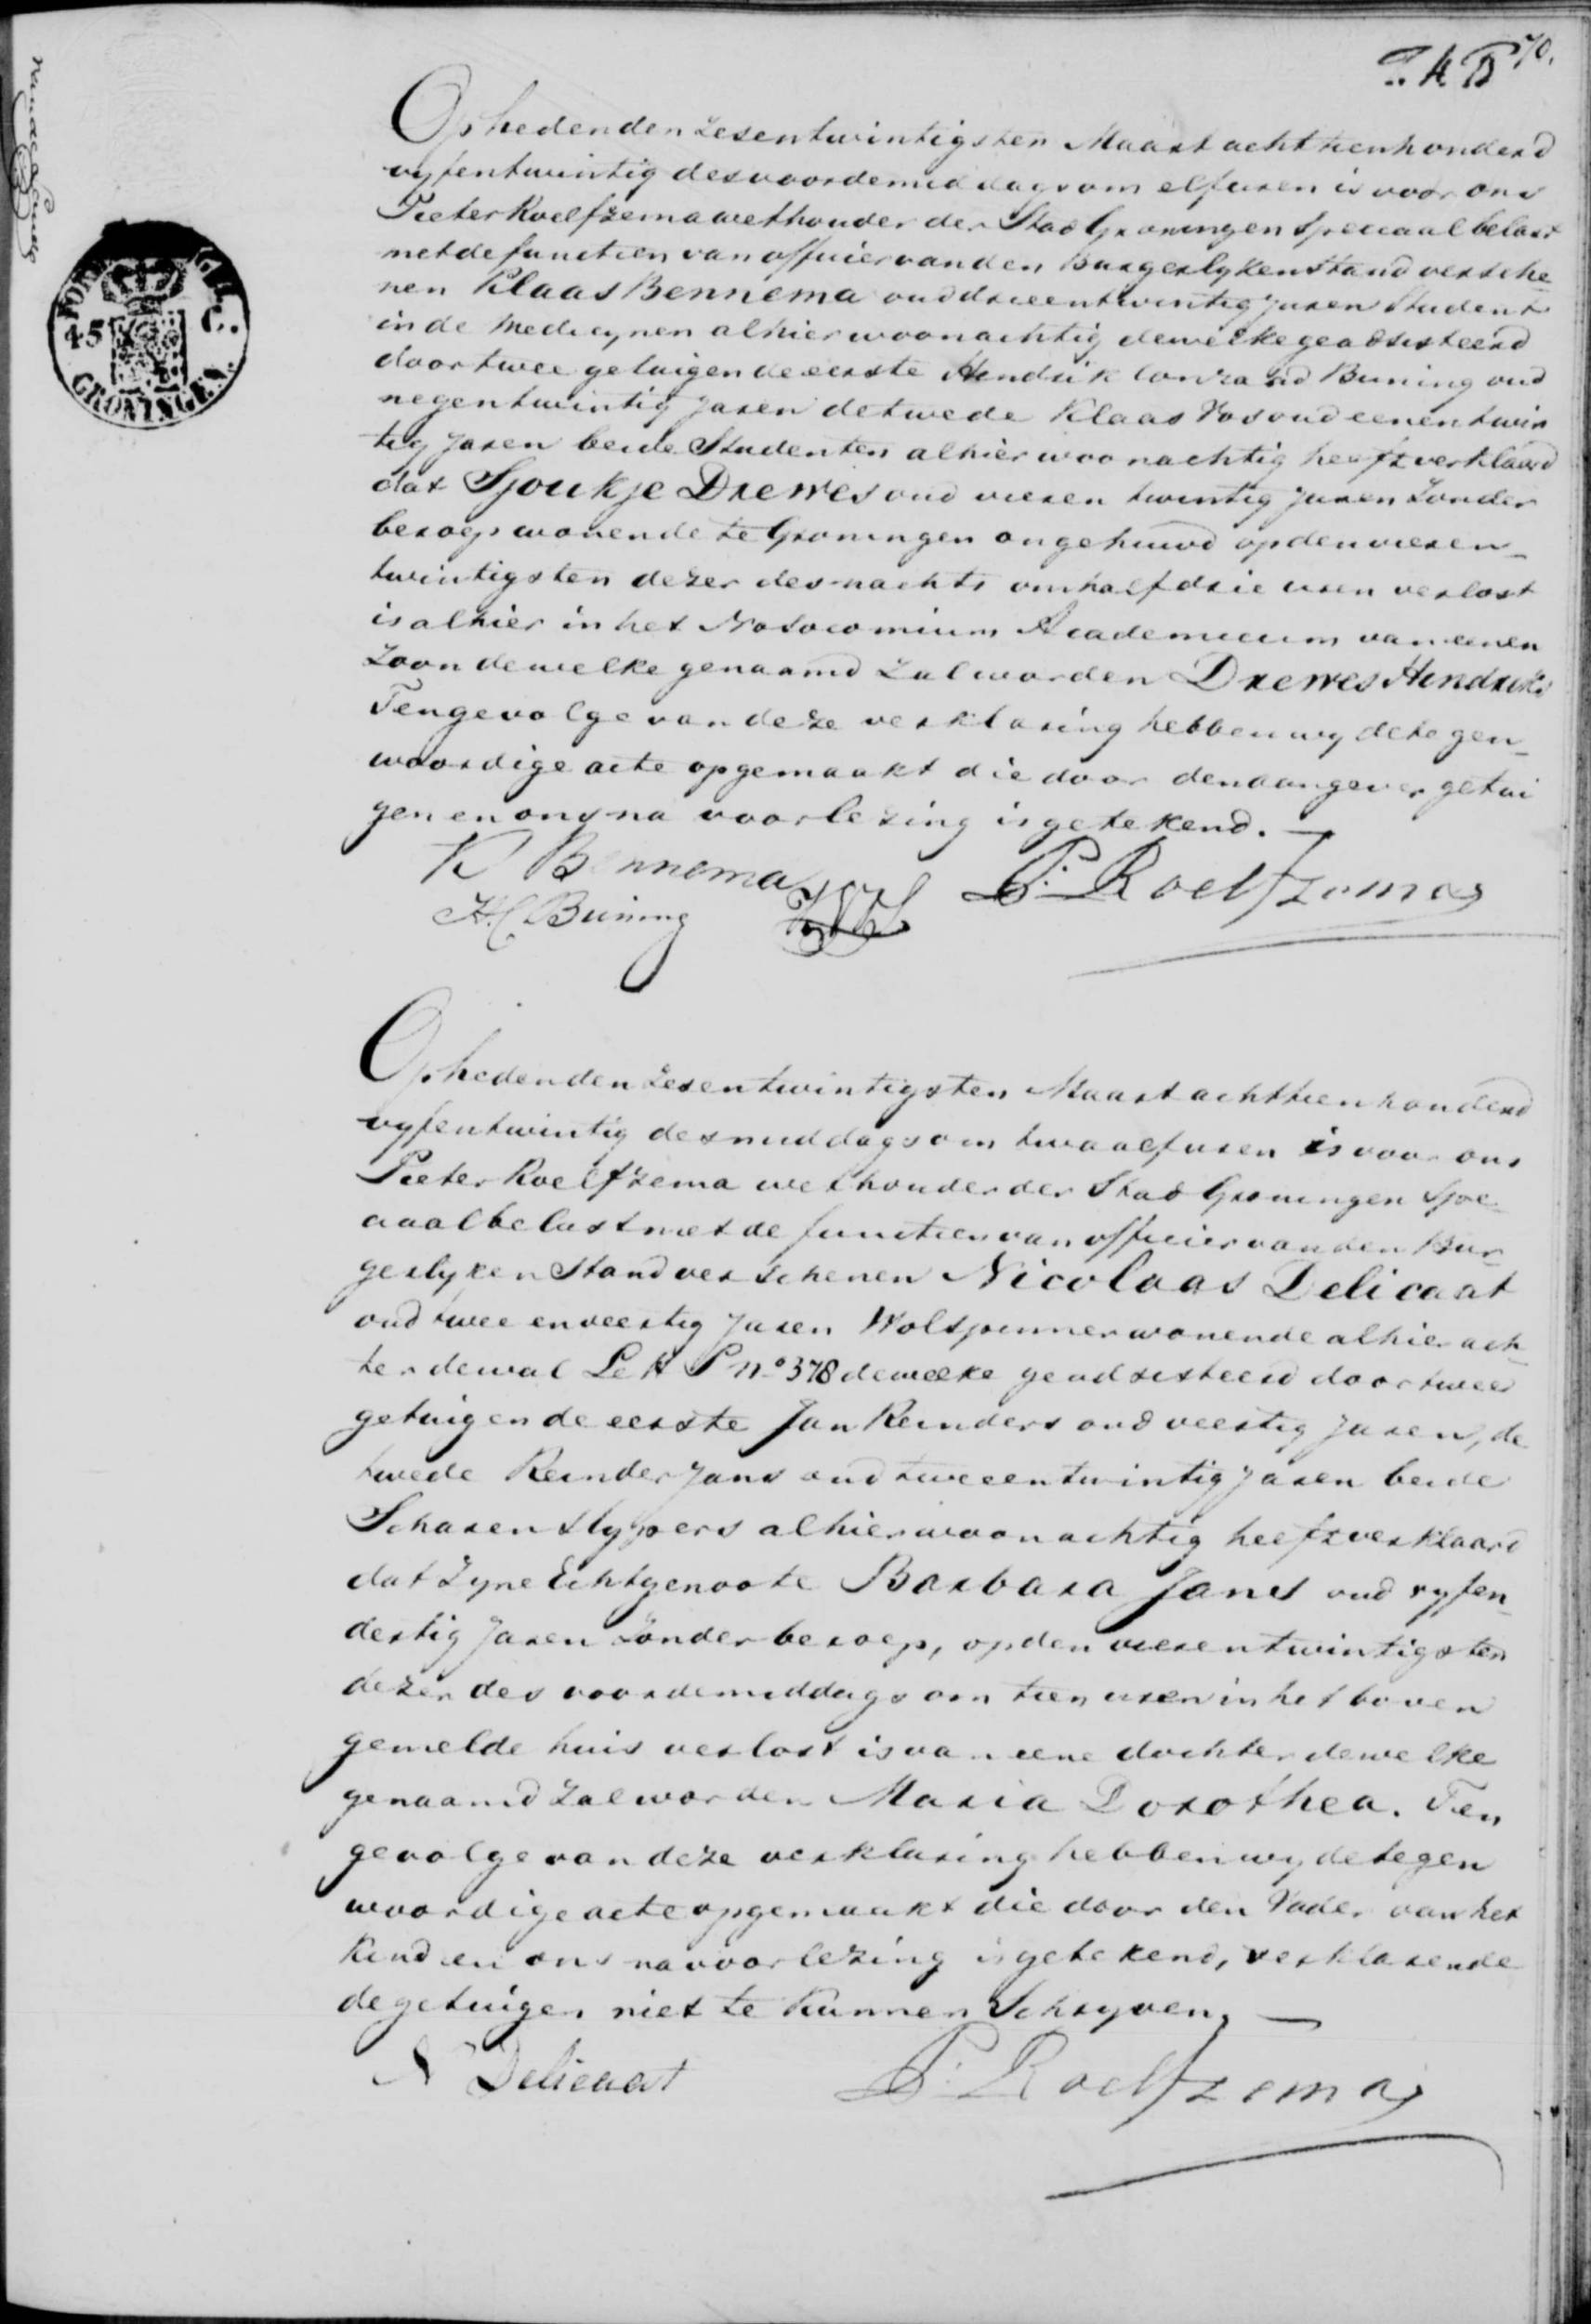 70.
Op heden den zesentwintigsten Maart achttienhonderd
vyfentwintig des voordemiddags om elf uren is voor ons
Pieter Roelfzema wethouder der Stad Groningen speciaal belast
met de functien van officier van den burgerlyken stand versche
nen Klaas Bennema oud drieentwintig jaren Student
in de medicynen alhier woonachtig dewelke geadsisteerd
door twee getuigen de eerste Hendrik Conraad Buning oud
negentwintig jaren de twede Klaas Vos oud eenentwin
tig jaren beide Studenten alhier woonachtig heeft verklaard
dat Sjoukje Drewes oud vieren twintig jaren zonder
beroep wonende te Groningen ongehuwd op den vieren-
twintigsten dezer des nachts om half drie uren verlost
is alhier in het Nosocomium Academicum van eenen
zoon dewelke genaamd zal worden Drewes Hendriks
Tengevolge van deze verklaring hebben wy de tegen-
woordige acte opgemaakt die door den aangever getui
gen en ons na voorlezing is getekend. —
K Bennema
H.C. Buning
P. Roelfzema
Op heden den zesentwintigsten Maart achttienhonderd
vyfentwintig des middags om twaalf uren is voor ons
Pieter Roelfzema wethouder der Stad Groningen spe-
ciaal belast met de functien van officier van den Bur-
gerlyken stand verschenen Nicolaas Delicaat
oud twee en veertig jaren Wolspinner wonende alhier ach-
ter de wal Lett P no 378 dewelke geadsisteerd door twee
getuigen de eerste Jan Reinders oud veertig jaren, de
twede Reinder Jans oud tweeentwintig jaren beide
Scharenslypers alhier woonachtig heeft verklaard
dat zyne Echtgenoote Barbara Jans oud vyfen-
dertig jaren zonder beroep, op den vierentwintigsten
dezer des voordemiddags om tien uren in het boven
gemelde huis verlost is van eene dochter dewelke
genaamd zal worden Maria Dorothea. Ten
gevolge van deze verklaring hebben wy de tegen
woordige acte opgemaakt die door den Vader van het
kind en ons na voorlezing is getekend, verklarende
de getuigen niet te kunnen Schryven. —
N Delicaat
P. Roelfzema
45 C.
GRONINGEN.